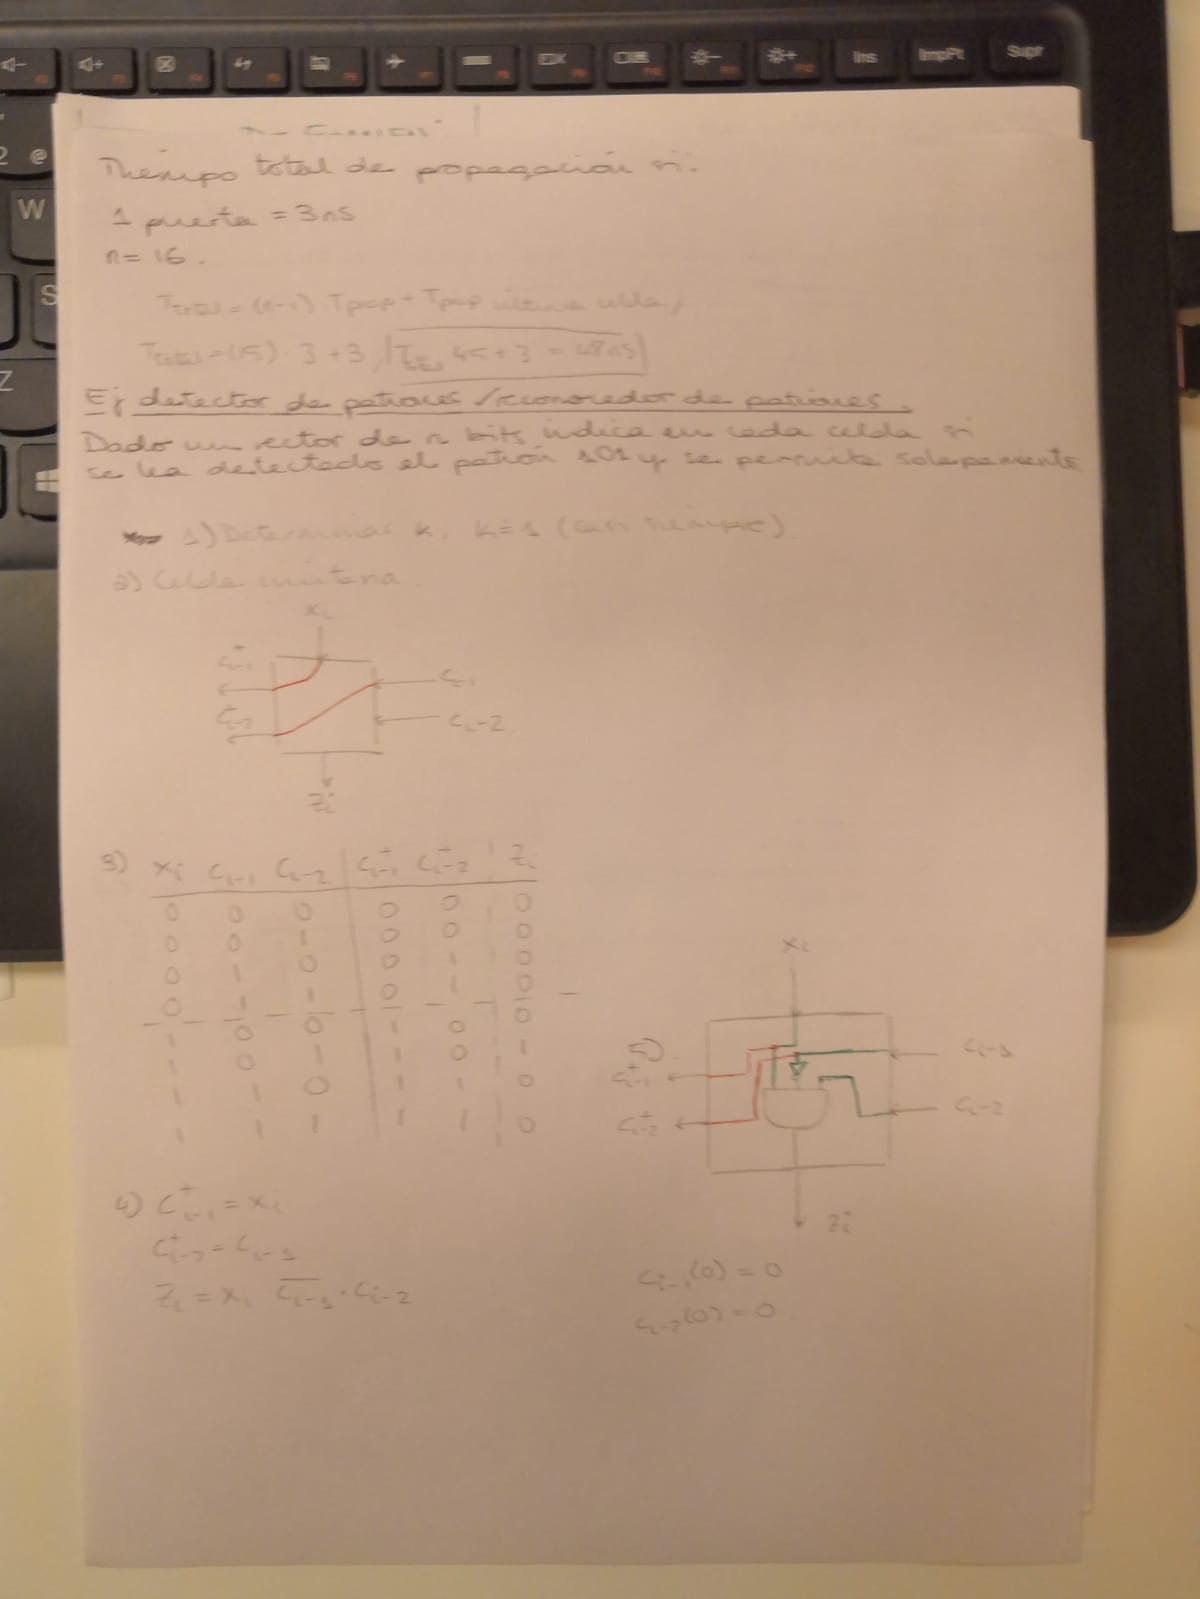 Ins ImpPt Supr
@
W
S
Z
Tiempo total de propagación si:
1 puerta = 3ns
n= 16.
Ttotal = (n-1) Tprop + Tprop última celda
Ttotal = (15) 3 + 3 45 + 3 = 48ns
Ej detector de patrones /reconocedor de patrones.
Dado un vector de n bits indica en cada celda si
se ha detectado el patrón 101 y se permite solapamiento
1) Determinar k. k=1 (casi siempre)
2) Celda
xi
Ci-1+ Ci-1
Ci-2+ Ci-2
Zi
3) xi Ci-1 Ci-2 Ci-1+ Ci-2+ Zi
0 0 0 0 0 0
0 0 1 0 0 0
0 1 0 0 1 0
0 1 1 0 1 0
1 0 0 1 0 0
1 0 1 1 0 1
1 1 0 1 1 0
1 1 1 1 1 0
4) Ci-1+ = xi
Ci-2+ = Ci-1
Zi = xi C̅i-1 · Ci-2
5).
xi
Ci-1+ Ci-1
Ci-2+ Ci-2
Zi
Ci-1(0) = 0
Ci-2(0) = 0